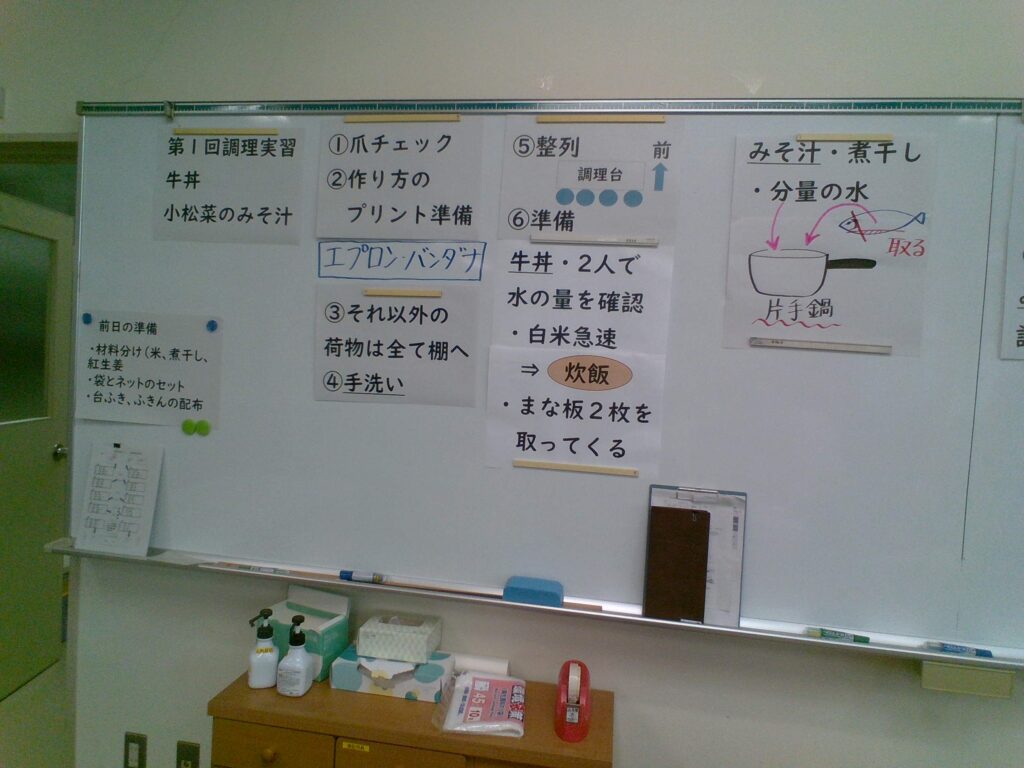 第1回調理実習
牛丼
小松菜のみそ汁
前日の準備
・材料分け(米、煮干し、
紅生姜
・袋とネットのセット
・台ふき、ふきんの配布
①爪チェック
②作り方の
プリント準備
エプロン・バンダナ
③それ以外の
荷物は全て棚へ
④手洗い
⑤整列
前
調理台
⑥準備
牛丼・2人で
水の量を確認
・白米急速
⇒ 炊飯
・まな板2枚を
取ってくる
みそ汁・煮干し
・分量の水
取る
片手鍋
45